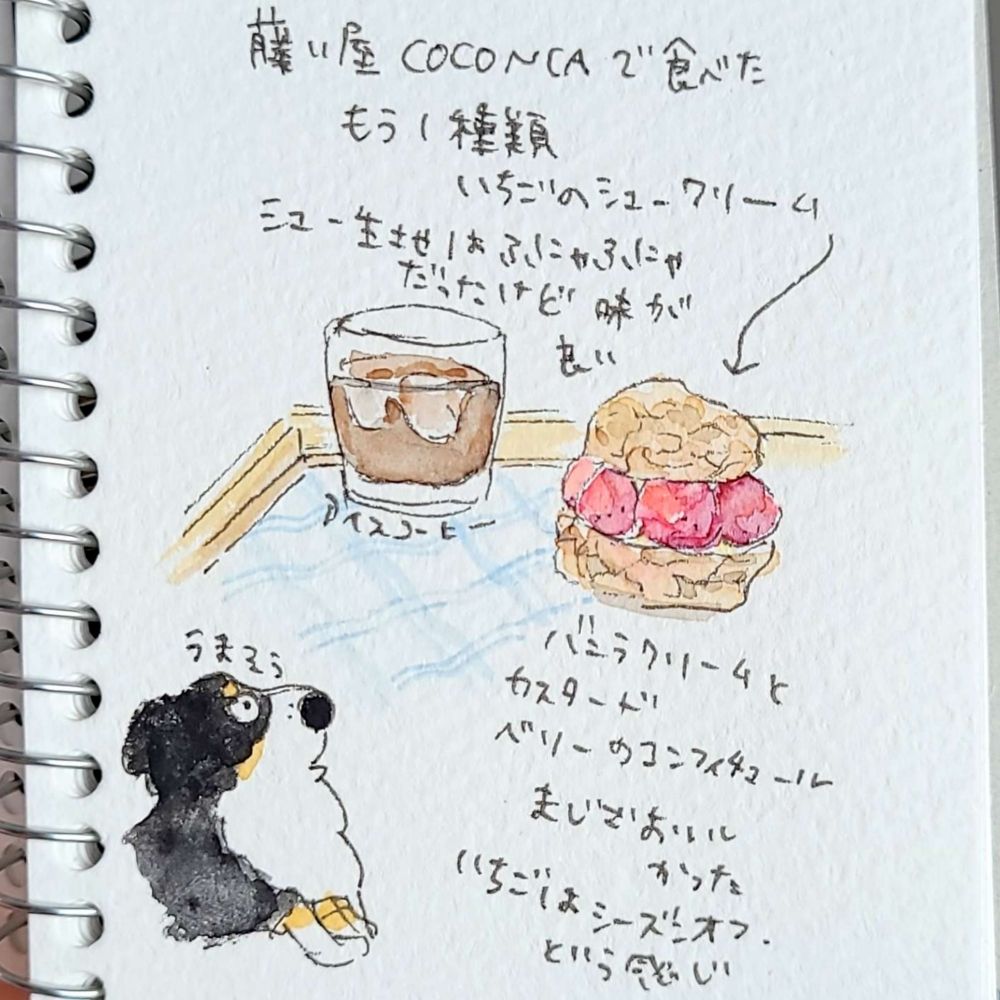 藤い屋 COCONCAで食べた
もう1種類
いちごのシュークリーム
シュー生地は ふにゃふにゃ
だったけど 味が
良い
アイスコーヒー
うまそう
バニラクリームと
カスタード
ベリーのコンフィチュール
まじでおいし
かった
いちごはシーズンオフ.
という感じ